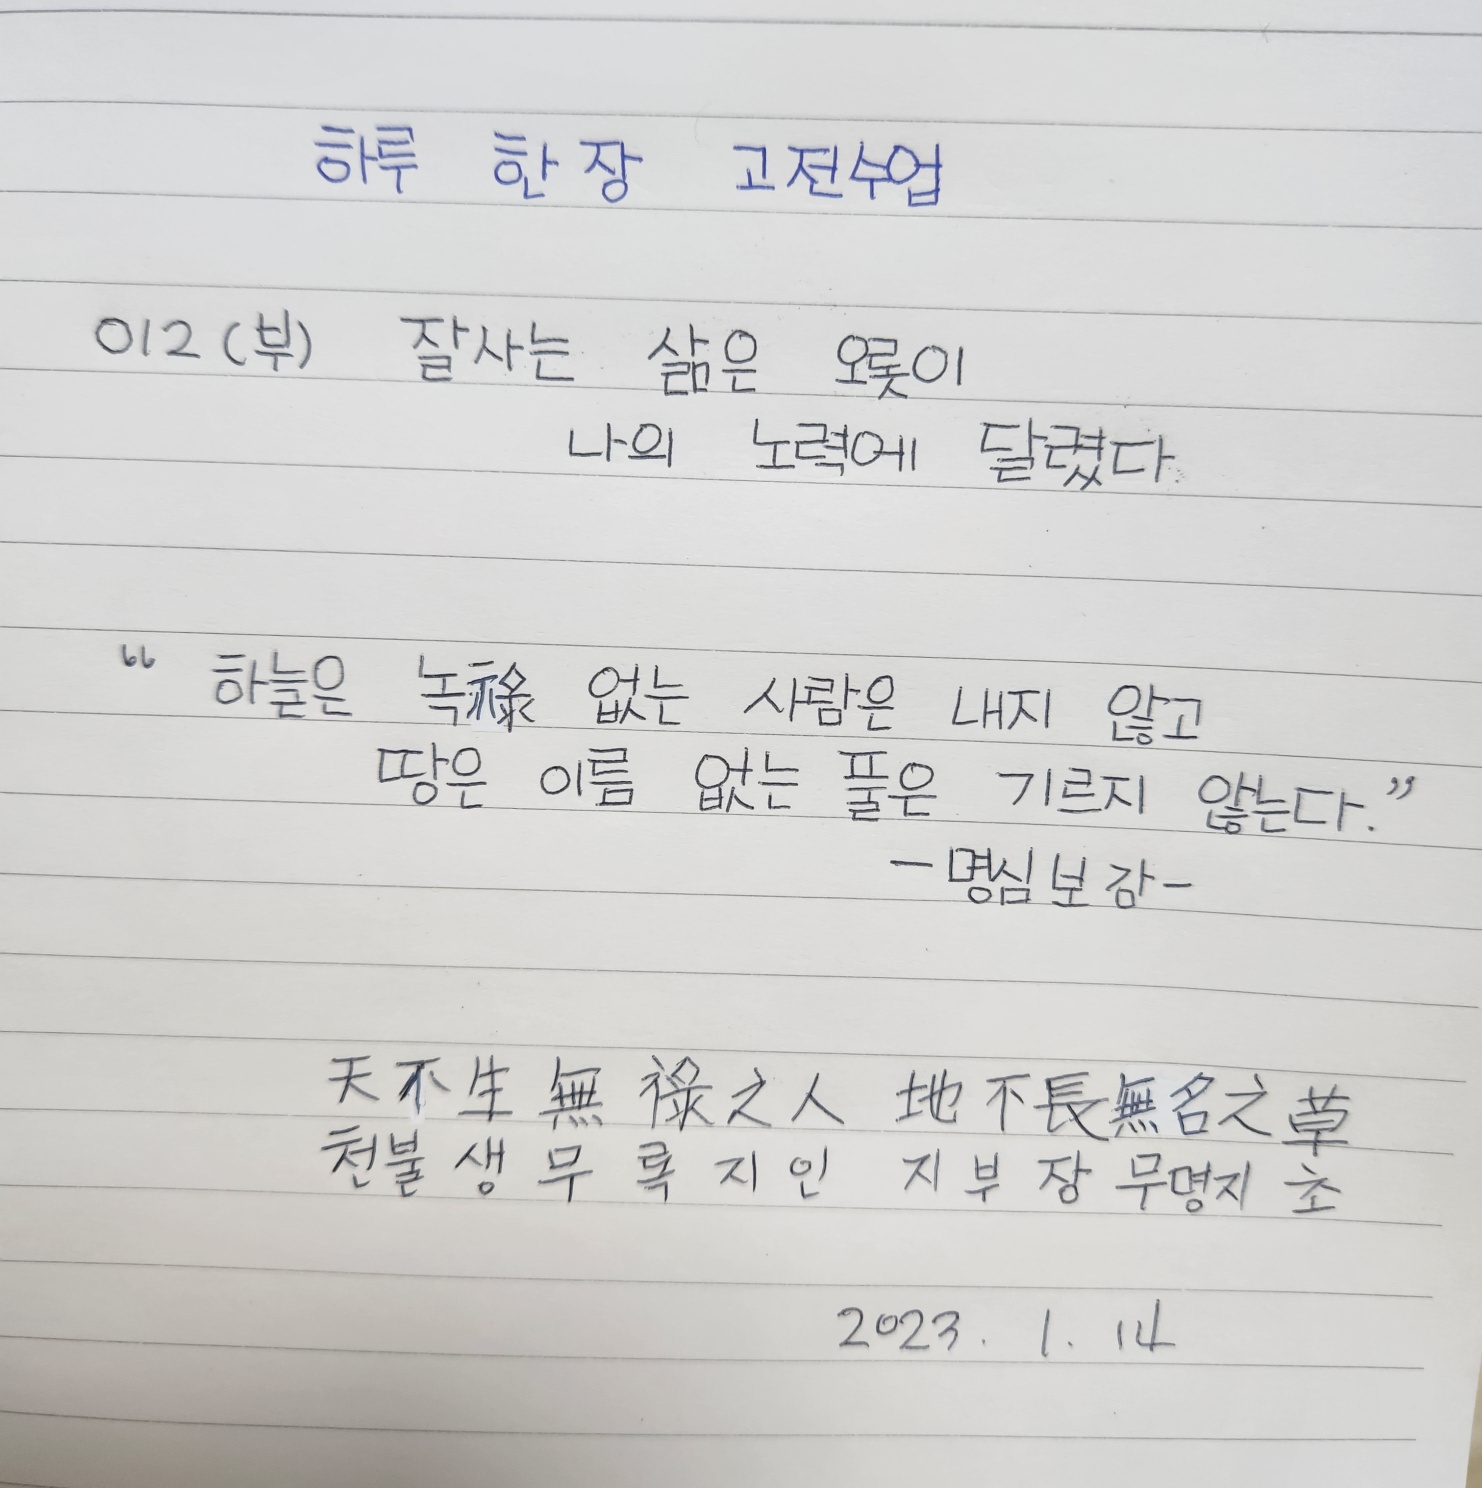 하루 한 장 고전수업
012(부) 잘사는 삶은 오롯이
나의 노력에 달렸다.
“ 하늘은 녹祿 없는 사람은 내지 않고
땅은 이름 없는 풀은 기르지 않는다.”
- 명심보감 -
天不生無祿之人 地不長無名之草
천불생무록지인 지부장무명지초
2023. 1. 14